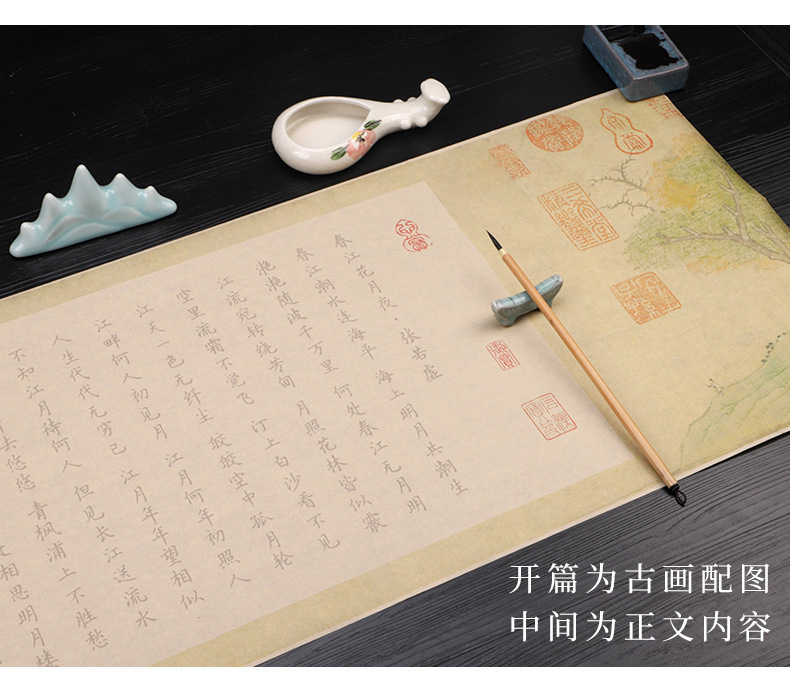 春江花月夜·张若虚
春江潮水连海平 海上明月共潮生
滟滟随波千万里 何处春江无月明
江流宛转绕芳甸 月照花林皆似霰
空里流霜不觉飞 汀上白沙看不见
江天一色无纤尘 皎皎空中孤月轮
江畔何人初见月 江月何年初照人
人生代代无穷已 江月年年望相似
不知江月待何人 但见长江送流水
去悠悠 青枫浦上不胜愁
相思明月楼
开篇为古画配图
中间为正文内容